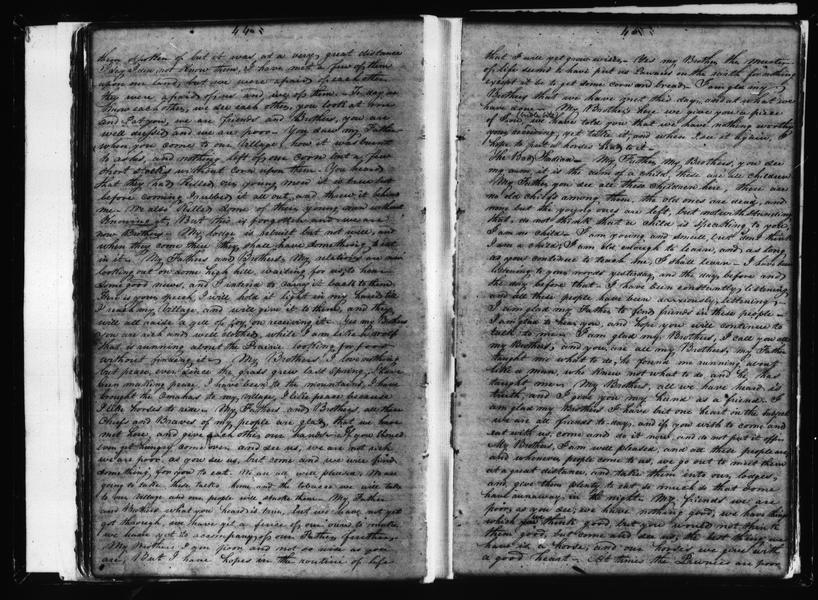 44
then spoken of but it was at a very great distance
I say I did not know them, I have met a few of them
upon our land, but we were afraid of each other
they were afraid of me and we of them. To day we
know each other, we see each other, you look at here
and I at you, we are friends and Brothers, you are
well dressed and we are poor. You saw my Father
when you come to our Village, how it was burnt
to ashes, and nothing left of our corn but a few
short stocks without corn upon them. You heard
that they had killed our young men it is true but
before coming I rubbed it all out, and threw it behind
me. We also killed some of their young men without
knowing it, But this is forgotten and we are
now Brothers. My lodge is rebuilt but not well, and
when they come there they shall have something put
in it. My Fathers and Brothers, My relations are now
looking out on some high hill, waiting for us, to hear
some good news, and I intend to carry it back to them.
This is your speech, I will hold it tight in my hand till
I reach my Village, and will give it to them, and they
will all raise a yell of joy, on receiving it. You my Brothers
you are rich and well clothed, while I am like the wolf
that is running about the Prairie looking for food
without finding it. My Brothers I love nothing
but peace, ever since the grass grew last spring, I have
been making peace, I have been to the mountains, I have
brought the Omahas to my village, I like peace because
I like horses to ride. My Fathers, and Brothers, all these
Chiefs and Braves of my people are glad, that we have
met here, and give each other our hands. If you should
ever get hungry come over and see us, we are not rich
we are poor, as you see us, but come and we will find
something, for you to eat. We are all well pleased. We are
going to take these talks home and the tobacco we will take
to our Village and our people will smoke them. My Father
and Brothers what you heard is true, but we have not yet
got through, we have yet a piece of our own to make,
we have yet to accompany our Father further.
My Brothers I am poor, and not so wise as you
are, But I have hopes in the routine of life
45
that I will yet grow wise. But my Brothers the master
of life seems to have put us Pawnees on the earth for nothing
except it is to get some corn and bread. I am glad my
Brothers that we have met this day, and at what we
have done. My Brothers here we give you a piece
of land, we have told you that we have nothing worthy
your receiving, yet take it, and when I see it again, I
hope to put a horse's head to it.
The Bad Indian. My Father, My Brothers, you see
my arm, it is the arm of a child, these are all children
My Father you see all these children here, there are
no old chiefs among them, the old ones are dead, and
only but the young ones are left, but notwithstanding
that do not think that a child is speaking to you,
I am no child. I am young and small, but don't think
I am a child, I am old enough to learn, and as long
as you continue to teach me, I shall learn. I have been
listening to your words yesterday, and the day before and
the day before that. I have been constantly listening
and all these people have been anxiously listening
I am glad my Father to find friends in these people
I am glad to hear you, and hope you will continue to
talk to me. I am glad my Brothers, I call you all
my Brothers, and you are all my Brothers, my Father
taught me what to do, he found me running about
like a man, who knew not what to do, and he has
taught me. My Brothers, all we have heard is
truth, and I give you my hand as a friend. I
am glad my Brothers I have but one heart on the subject
we are all friends to day, and if you wish to come and
eat with us, come and do it now, and do not put it off.
My Brothers, I am well pleased, and all these people are
and whenever people come to us, we go out to meet them
at a great distance, and take them into our lodges,
and give them plenty to eat so much so that some
have run away, in the night. My friends we are
poor, as you see, we have nothing good, we have things
which we think good, but you would not think
them good, but come and see us, the best thing we
have is a horse, and our horses we give with
a good heart. At times the Pawnees are poor